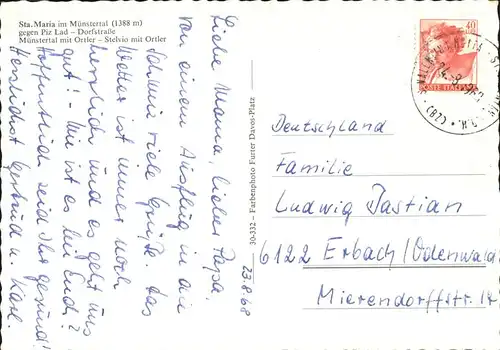 Sta. Maria im Münstertal (1388 m)
gegen Piz Lad – Dorfstraße
Münstertal mit Ortler – Stelvio mit Ortler
23.8.68
Liebe Mama, lieber Papa,
von einem Ausflug in die
Schweiz viele Grüße. Das
Wetter ist immer noch
herrlich und es geht uns
gut! – Wie ist es bei Euch?
Hoffentlich seid Ihr gesund!
Herzlichst Gertrud u. Karl.
30-332 – Farbenphoto Furter Davos-Platz
40
POSTE ITALIANE
Deutschland
Familie
Ludwig Pastian
6122 Erbach/Odenwald
Mierendorffstr. 14